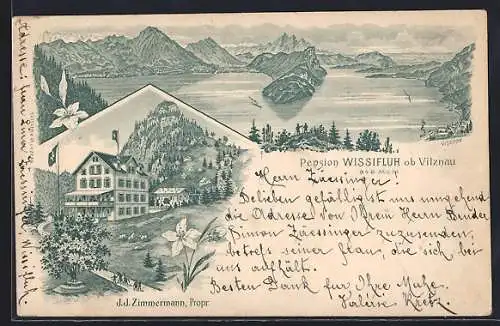 Pension WISSIFLUH ob Vitznau
Vitznau
J.J. Zimmermann, Propr.
Herrn Zaessinger!
Belieben gefälligst uns umgehend
die Adresse von Ihrem Herrn Bruder
Simon Zaessinger zuzusenden,
betrefs seiner frau, die sich bei
uns aufhält.
Besten Dank für Ihre Mühe.
Adresse: frau Simon Zaessinger
Wissifluh